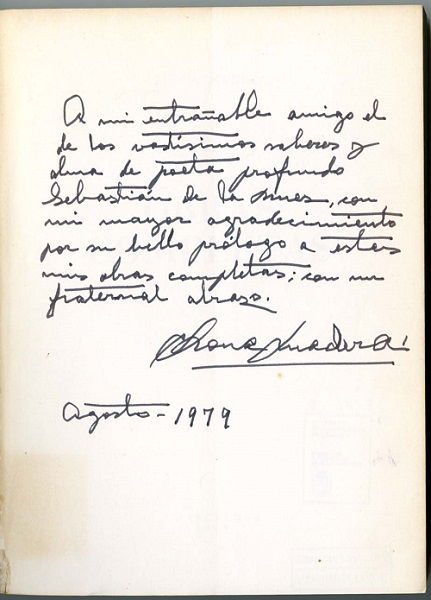 A mi entrañable amigo el
de los vastísimos saberes y
alma de poeta profundo
Sebastián de la Nuez, con
mi mayor agradecimiento
por su bello prólogo a estas
mis obras completas; con un
fraternal abrazo.
Chona Madera
Agosto - 1979